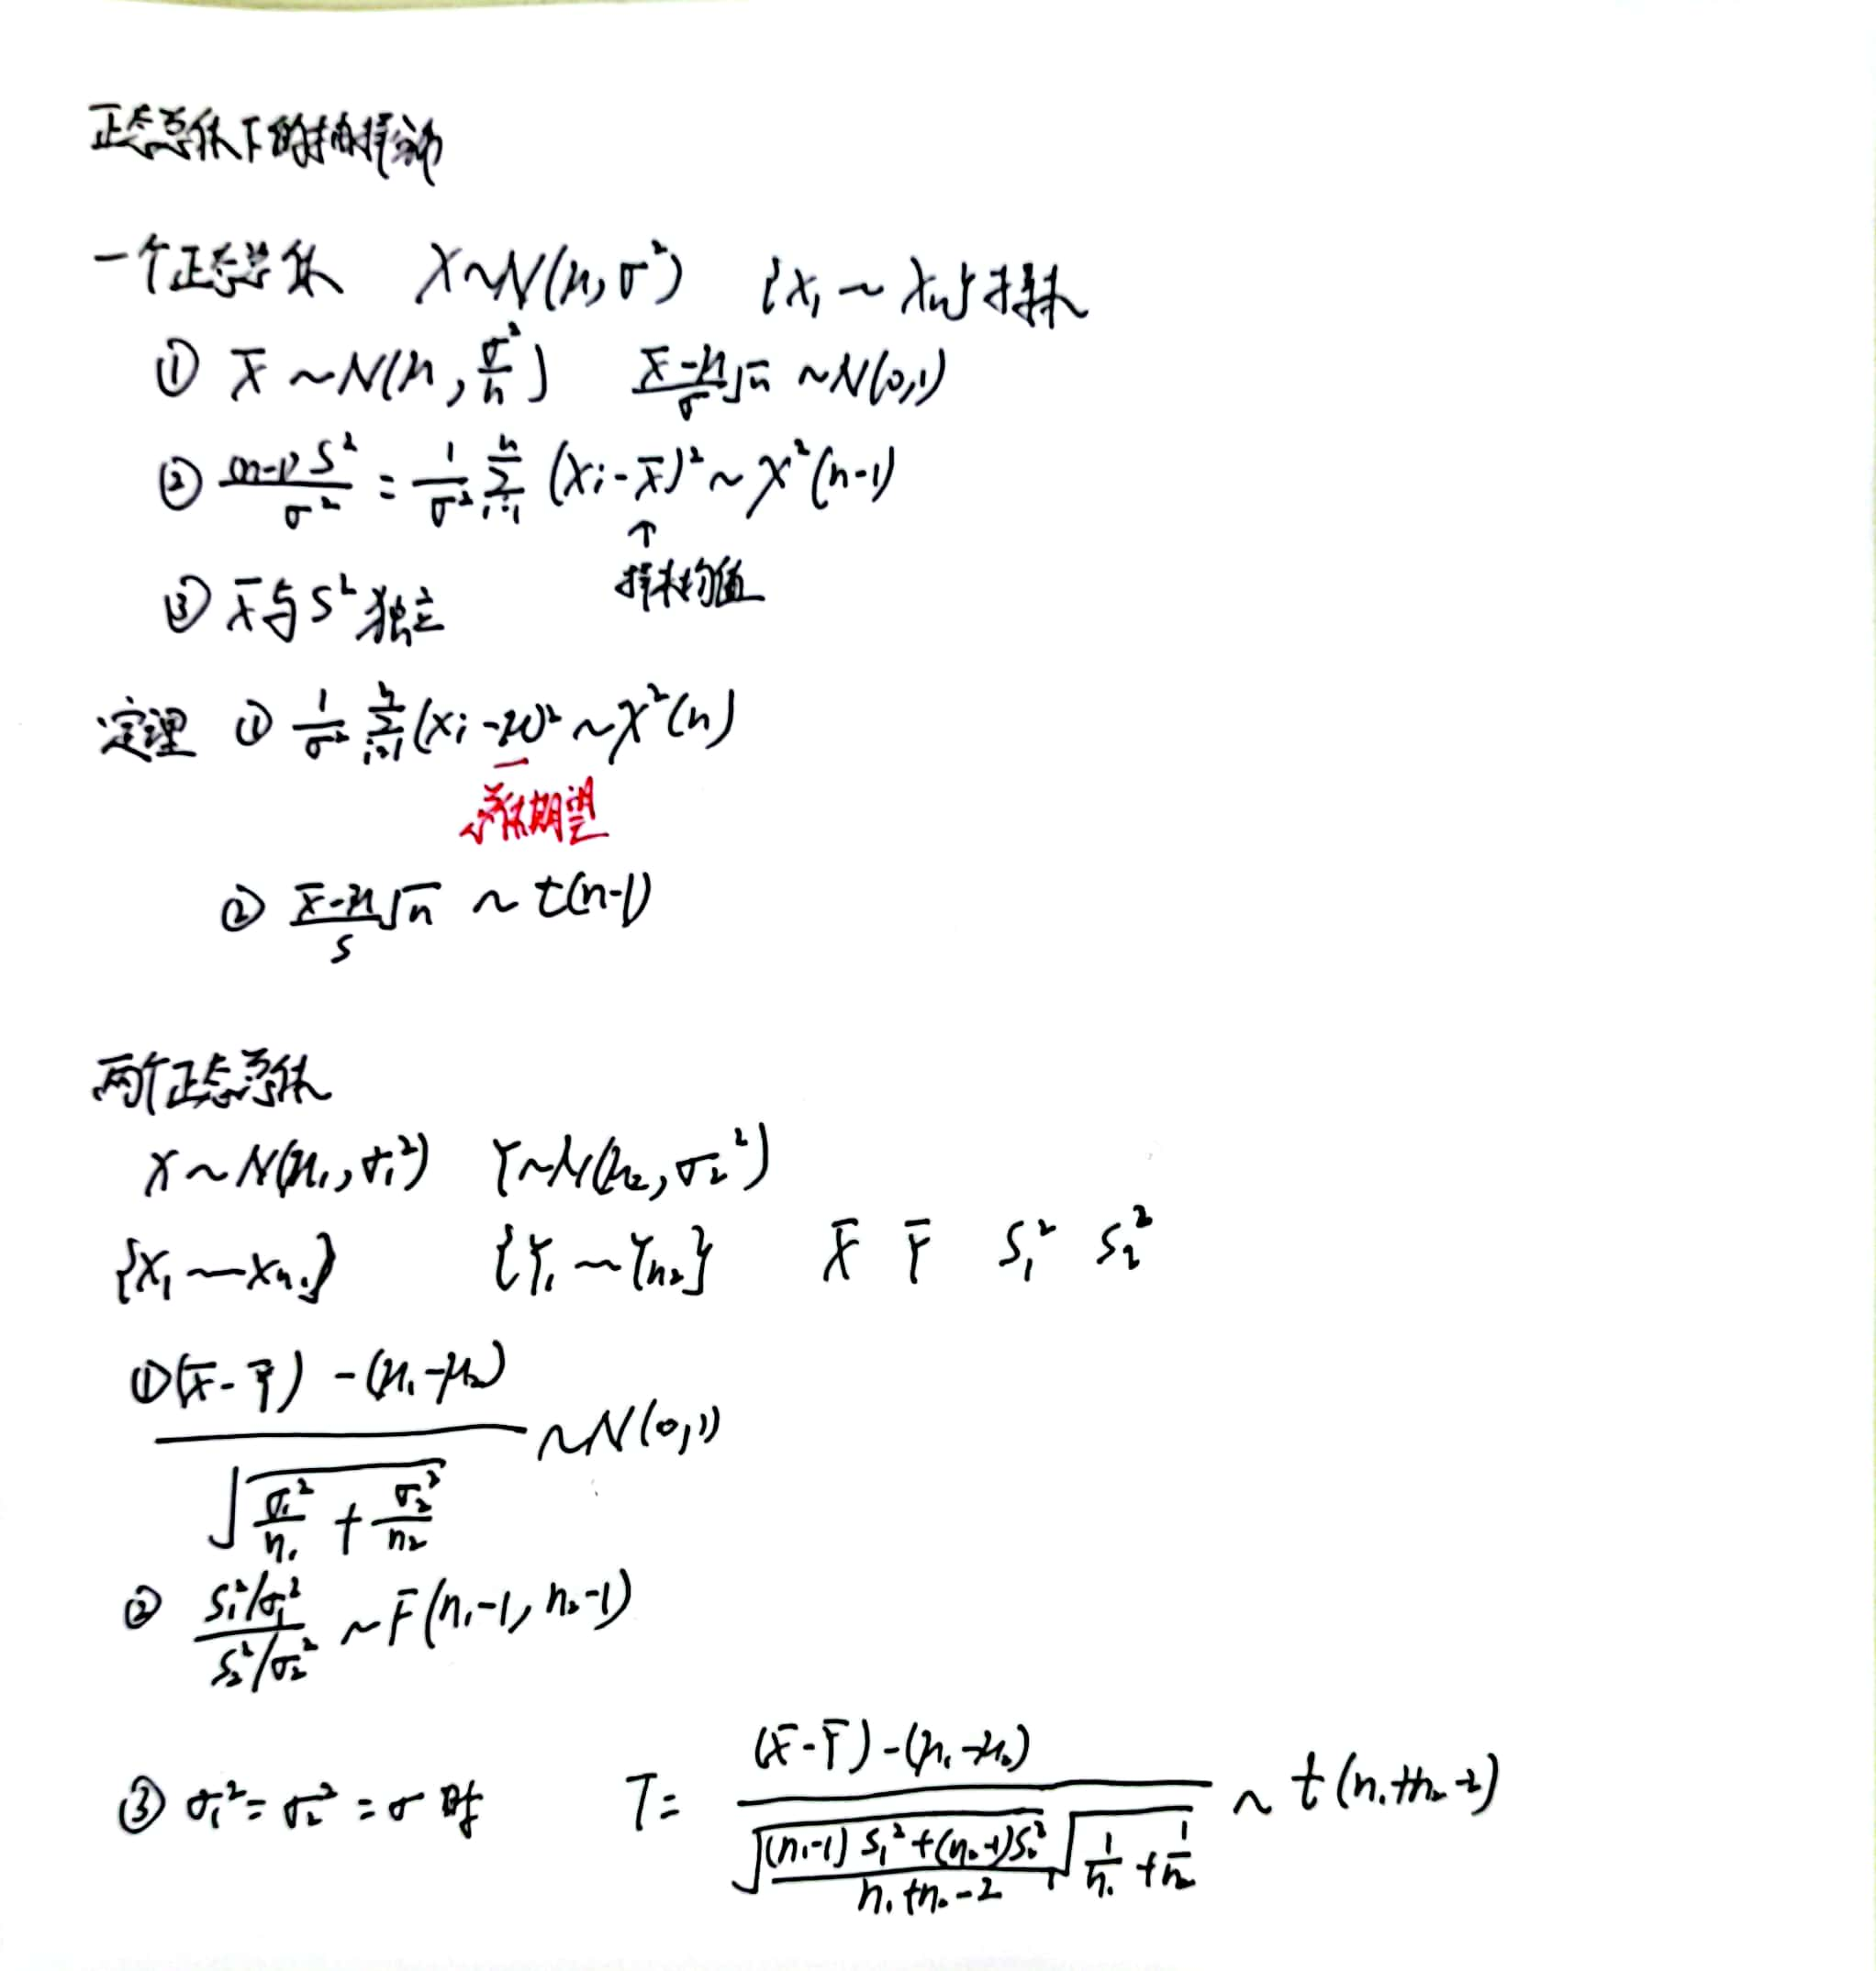 正态总体下的抽样分布
一个正态总体 X~N(μ,σ²) {X₁~Xₙ}样本
① X̄~N(μ,σ²/n) (X̄-μ)/σ √n ~N(0,1)
② (n-1)S²/σ² = 1/σ² Σᵢ₌₁ⁿ (Xᵢ-X̄)² ~ χ²(n-1)
↑
样本均值
③ X̄与S²独立
定理 ① 1/σ² Σᵢ₌₁ⁿ (Xᵢ-μ)² ~χ²(n)
总体期望
② (X̄-μ)/S √n ~ t(n-1)
两个正态总体
X~N(μ₁,σ₁²) Y~N(μ₂,σ₂²)
{X₁~Xₙ₁} {Y₁~Yₙ₂} X̄ Ȳ S₁² S₂²
① ((X̄-Ȳ)-(μ₁-μ₂))/√(σ₁²/n₁+σ₂²/n₂) ~N(0,1)
② (S₁²/σ₁²)/(S₂²/σ₂²) ~F(n₁-1,n₂-1)
③ σ₁²=σ₂²=σ时 T= ((X̄-Ȳ)-(μ₁-μ₂))/(√(((n₁-1)S₁²+(n₂-1)S₂²)/(n₁+n₂-2)) √(1/n₁+1/n₂)) ~ t(n₁+n₂-2)